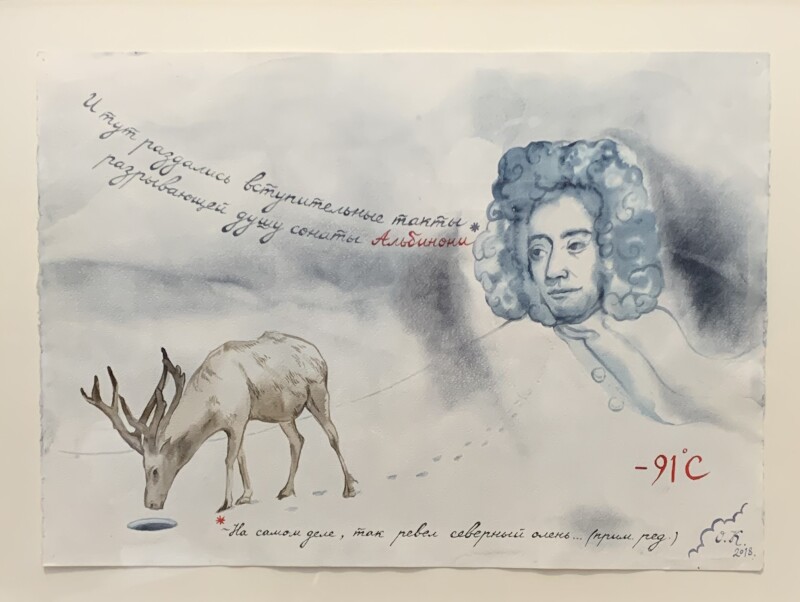 И тут раздались вступительные такты
разрывающей душу сонаты Альбинони*
-91°C
*-На самом деле, так ревел северный олень... (прим. ред.)
О.К.
2018.